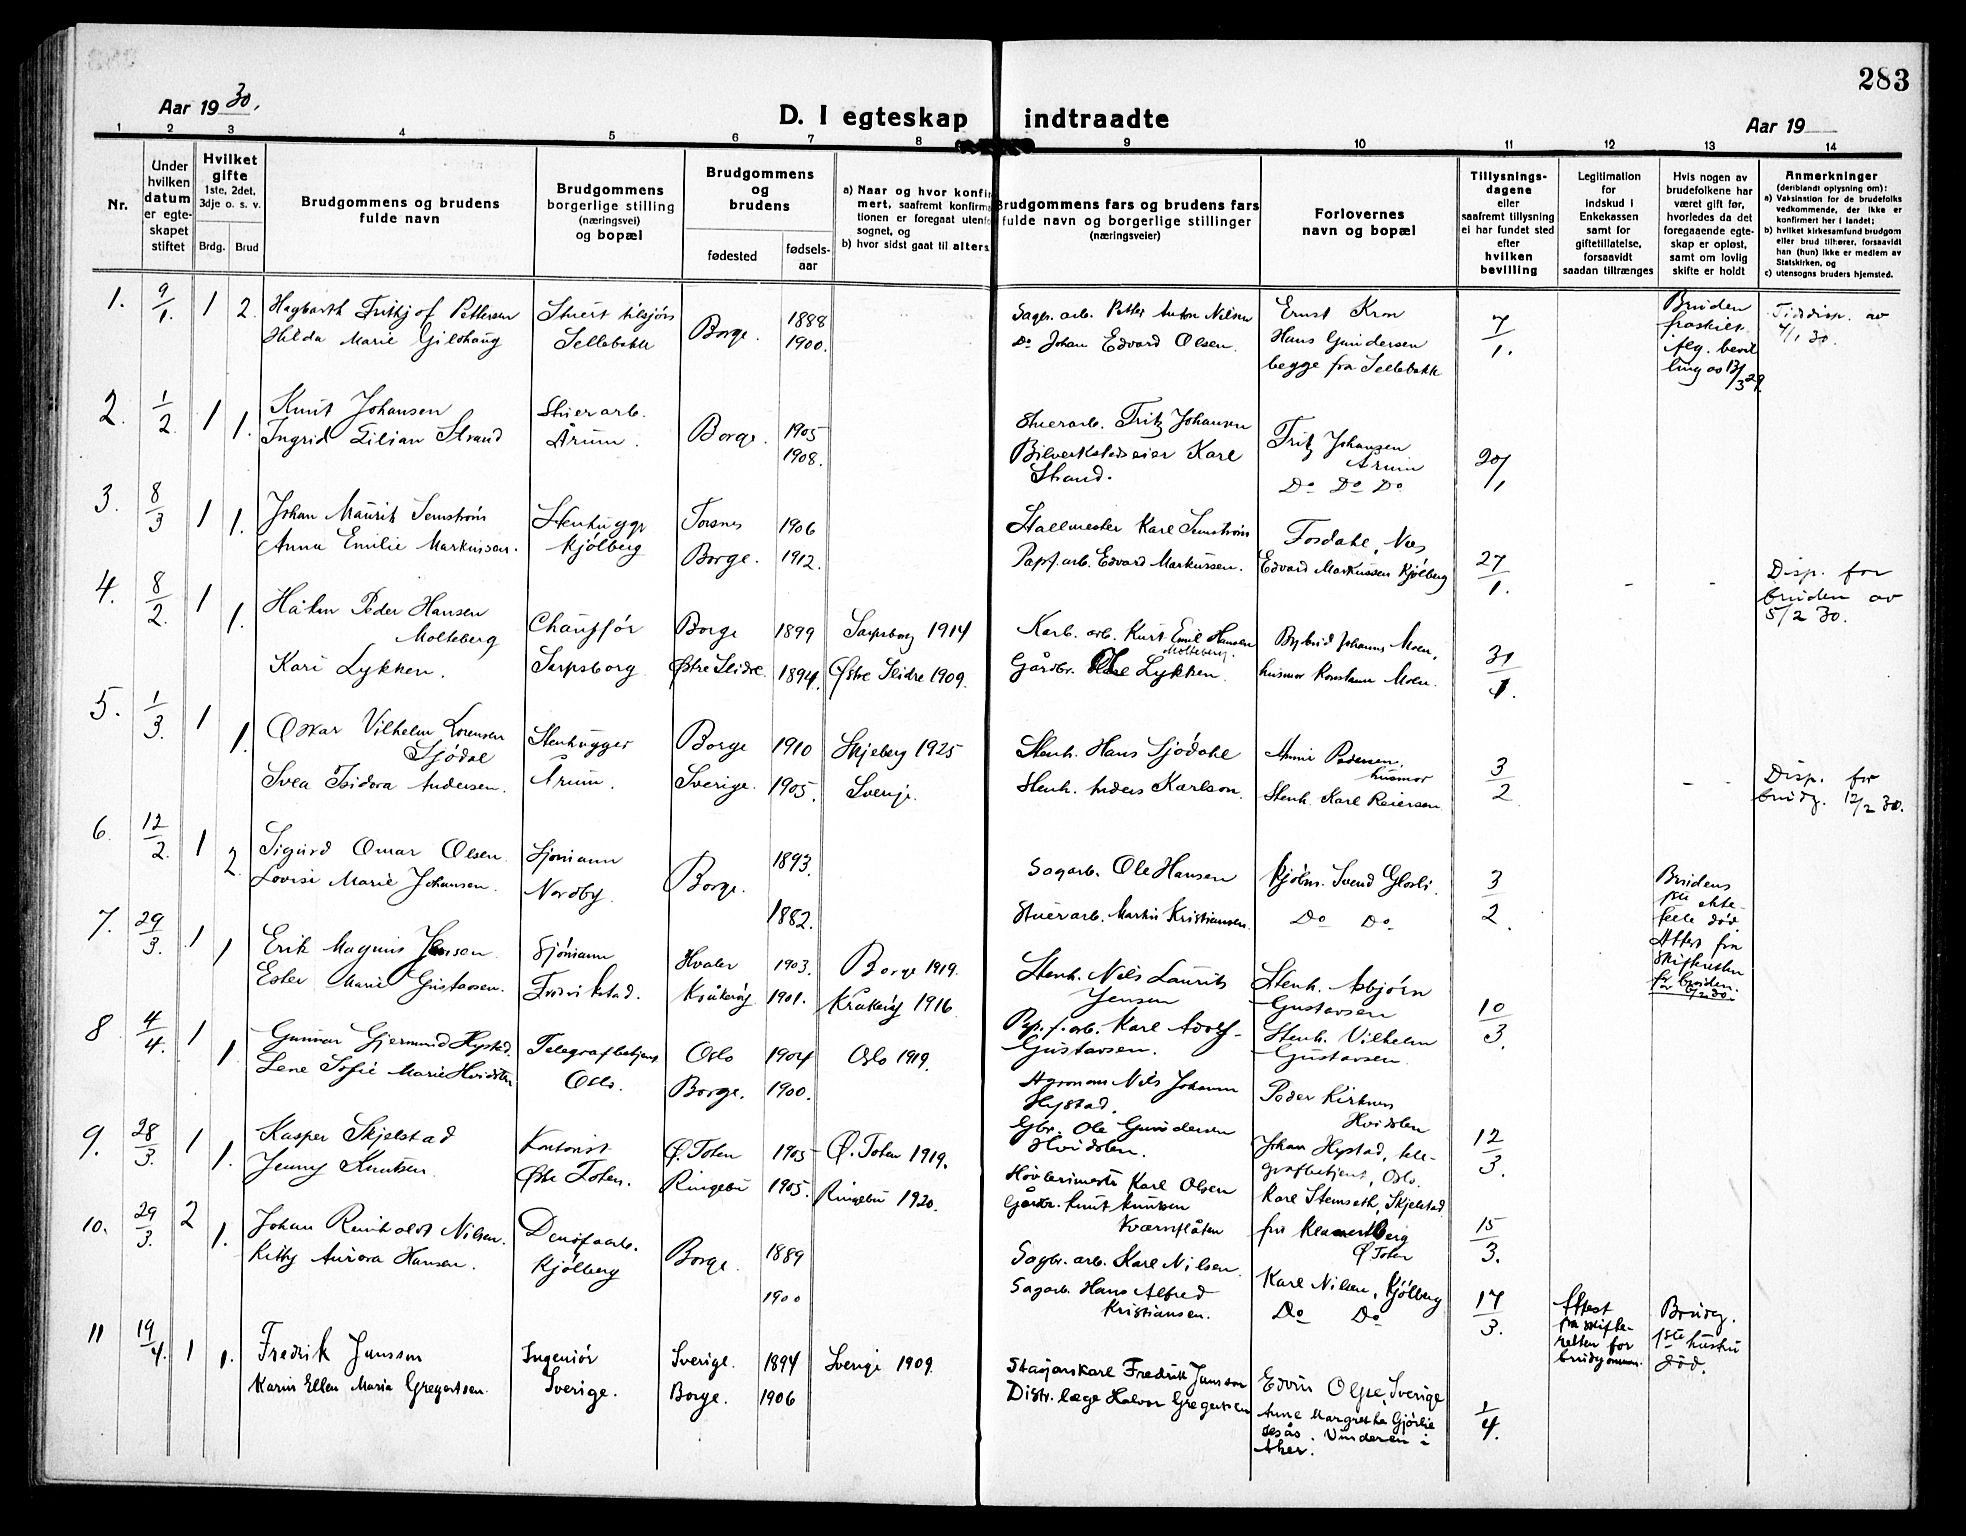 283
Aar 19 30.
D. I egteskap indtraadte
Aar 19
1 2 3 4 5 6 7 8 9 10 11 12 13 14
Nr.
Under
hvilken
datum
er egte-
skapet
stiftet
Hvilket
gifte
1ste, 2det,
3dje o. s. v.
Brdg. Brud
Brudgommens og brudens
fulde navn
Brudgommens
borgerlige stilling
(næringsvei)
og bopæl
Brudgommens
og
brudens
fødested
fødsels-
aar
a) Naar og hvor konfir
mert, saafremt konfirma
tionen er foregaat utenfo
sognet, og
b) hvor sidst gaat til alters.
Brudgommens fars og brudens fars
fulde navn og borgerlige stillinger
(næringsveier)
Forlovernes
navn og bopæl
Tillysnings-
dagene
eller
saafremt tillysning
ei har fundet sted
efter
hvilken
bevilling
Legitimation
for
indskud i
Enkekassen
samt for
giftetillatelse,
forsaavidt
saadan tiltrænges
Hvis nogen av
brudefolkene har
været gift før,
hvorledes da det
foregaaende egte-
skap er opløst,
samt om lovlig
skifte er holdt
Anmerkninger
(deriblandt oplysning om):
a) Vaksination for de brudefolks
vedkommende, der ikke er
konfirmert her i landet;
b) hvilket kirkesamfund brudgom
eller brud tilhører, forsaavidt
han (hun) ikke er medlem av
Statskirken, og
c) utensogns bruders hjemsted.
1. 9/1. 1 2.
Hagbarth Frithjof Pettersen
Hilda Marie Gildhaug
Sellebakk
Borge.
1888
1900.
Sagb. arb. Petter Anton Nilsen
Do Johan Edvard Olsen.
Ernst Kron
Hans Gundersen
begge fra Sellebakk
7/1.
Bruden
fraskilt.
iflg. bevil
ling av 13/3 29.
Tidsdisp. av
7/1 30.
2. 1/2. 1 1.
Knut Johansen
Ingrid Lilian Strand
Stuerarb.
Årum.
Borge.
1905
1908.
Stuerarb. Fritz Johansen
Bilverkstedseier Karl
Strand.
Fritz Johansen
Årum
Do Do Do
20/1
3. 8/3 1 1.
Johan Maurits Semstrøm
Anna Emilie Markussen.
Stenhugger
Kjølberg
Torsnes
Borge.
1906
1912.
Stallmester Karl Semstrøm
Papf. arb. Edvard Markussen.
Tosdahl, Næs
Edvard Markussen Kjølberg
27/1.
Disp. for
bruden av
5/2 30.
4. 8/2. 1 1.
Håkon Peder Hansen
Molteberg
Kari Lykken.
Chauffør
Sarpsborg
Borge
Østre Slidre.
1899
1894.
Sarpsborg 1914
Østre Slidre 1909.
Karb. arb. Kurt Emil Hansen
Molteberg.
Gårdbr. Ole Lykken.
Bybud Johannes Moen,
husmor Konstanse Moen.
31/1.
5. 1/3. 1 1.
Oskar Vilhelm Lorensen
Sjødal
Svea Isidora Andersen.
Stenhugger
Årum.
Borge
Sverige.
1910
1905.
Skjeberg 1925
Sverige.
Stenh. Hans Sjødahl
Stenh. Anders Karlson.
Anni Pedersen,
husmor
Stenh. Karl Reiersen
3/2
Disp. for
brudg. 12/2 30.
6. 12/2. 1 2.
Sigurd Omar Olsen.
Lovise Marie Johansen.
Sjømann
Nordby.
Borge.
1893.
1882.
Sagarb. Ole Hansen
Stuerarb. Martin Kristiansen.
Kjøbm. Svend Glosli.
Do Do
3/2.
Brudens
1ste ekte-
felle død.
Attest fra
skifteretten
for bruden.
7. 29/3. 1 1
Erik Magnus Jensen.
Ester Marie Gustavsen.
Sjømann
Fredrikstad.
Hvaler
Kråkerøy
1903.
1901.
Borge 1919.
Kråkerøy 1916.
Stenh. Nils Laurits
Jensen
Pap. f. arb. Karl Adolf
Gustavsen.
Stenh. Asbjørn
Gustavsen
Stenh. Vilhelm
Gustavsen.
10/3.
8 4/4. 1 1.
Gunnar Gjermund Hystad.
Lene Sofie Marie Hvidsten
Telegrafbetjent
Oslo.
Oslo
Borge.
1904
1900.
Oslo 1919.
Agronom Nils Johann
Hystad.
Gbr. Ole Gundersen
Hvidsten.
Peder Kirknes
Hvidsten
Johan Hystad, tele-
grafbetjent, Oslo.
12/3.
9. 28/3. 1 1.
Kasper Skjelstad
Jenny Knutsen.
Kontorist
Østre Toten.
Ø. Toten
Ringebu
1905
1905.
Ø. Toten 1919.
Ringebu 1920.
Høvlerimester Karl Olsen
Gårdbr. Knut Knutsen
Kværnflåten
Karl Stemseth, Skjelstad
fru Klamert Berg
Ø. Toten
15/3.
10. 29/3. 2 1.
Johan Reinholdt Nilsen.
Kitty Aurora Hansen.
Denofaarb.
Kjølberg
Borge.
1889
1900
Sagbr. arb. Karl Nilsen.
Sagarb. Hans Alfred
Kristiansen.
Karl Nilsen, Kjølberg
Do Do
17/3.
Attest
fra skifte-
retten for
brudgommen.
Brudg.
1ste hustru
død.
11 19/4. 1 1.
Fredrik Jansson
Karin Ellen Maria Gregertsen.
Ingeniør
Sverige.
Sverige.
Borge.
1894
1906
Sverige 1909.
Stasjonskarl Fredrik Jansson
Distr. læge Halvor Gregertsen
Edvin Olpe, Sverige
Anne Margrethe Gjørlie
desås. Vinderen i
Aker.
1/4.